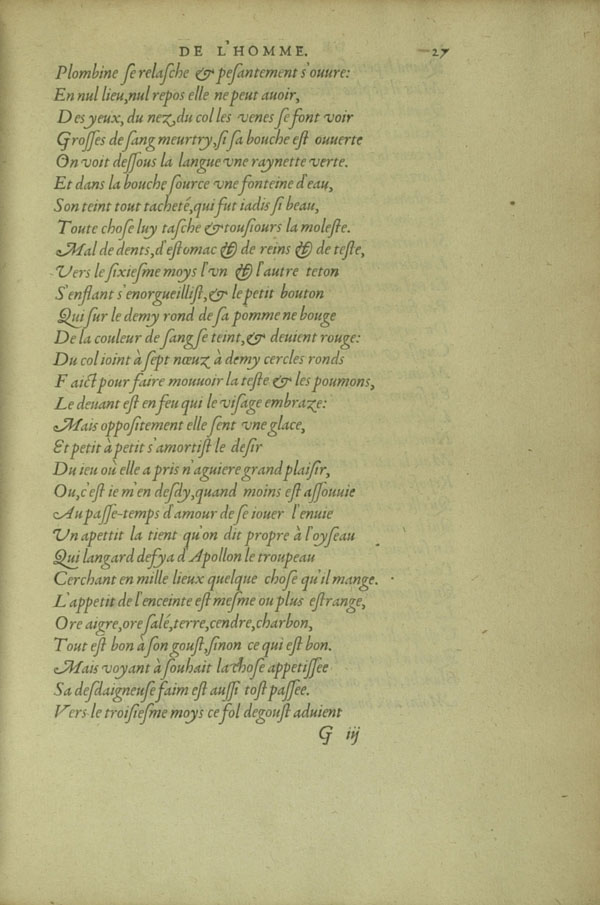 DE L'HOMME. 27
Plombine ſe relaſche & peſantement s'ouure:
En nul lieu, nul repos elle ne peut auoir,
Des yeux, du nez, du col les venes ſe font voir
Groſſes de ſang meurtry, ſi ſa bouche eſt ouuerte
On voit deſſous la langue vne raynette verte.
Et dans la bouche ſource vne fonteine d'eau,
Son teint tout tacheté, qui fut iadis ſi beau,
Toute choſe luy taſche & touſiours la moleſte.
Mal de dents, d'eſtomac & de reins & de teſte,
Vers le ſixieſme moys l'vn & l'autre teton
S'enflant s'enorgueilliſt, & le petit bouton
Qui ſur le demy rond de ſa pomme ne bouge
De la couleur de ſang ſe teint, & deuient rouge:
Du col ioint à ſept nœuz à demy cercles ronds
Faict pour faire mouuoir la teſte & les poumons,
Le deuant eſt en feu qui le viſage embraze:
Mais oppoſitement elle ſent vne glace,
Et petit à petit s'amortiſt le deſir
Du ieu où elle a pris n'aguiere grand plaiſir,
Ou, c'eſt ie m'en deſdy, quand moins eſt aſſouuie
Au paſſe-temps d'amour de ſe iouer l'enuie
Vn apettit la tient qu'on dit propre à l'oyſeau
Qui langard defya d'Apollon le troupeau
Cerchant en mille lieux quelque choſe qu'il mange.
L'appetit de l'enceinte eſt meſme ou plus eſtrange,
Ore aigre, ore ſalé, terre, cendre, charbon,
Tout eſt bon à ſon gouſt, ſinon ce qui eſt bon.
Mais voyant à ſouhait la choſe appetiſſee
Sa deſdaigneuſe faim eſt auſſi toſt paſſee.
Vers le troiſieſme moys ce fol degouſt aduient
G iij